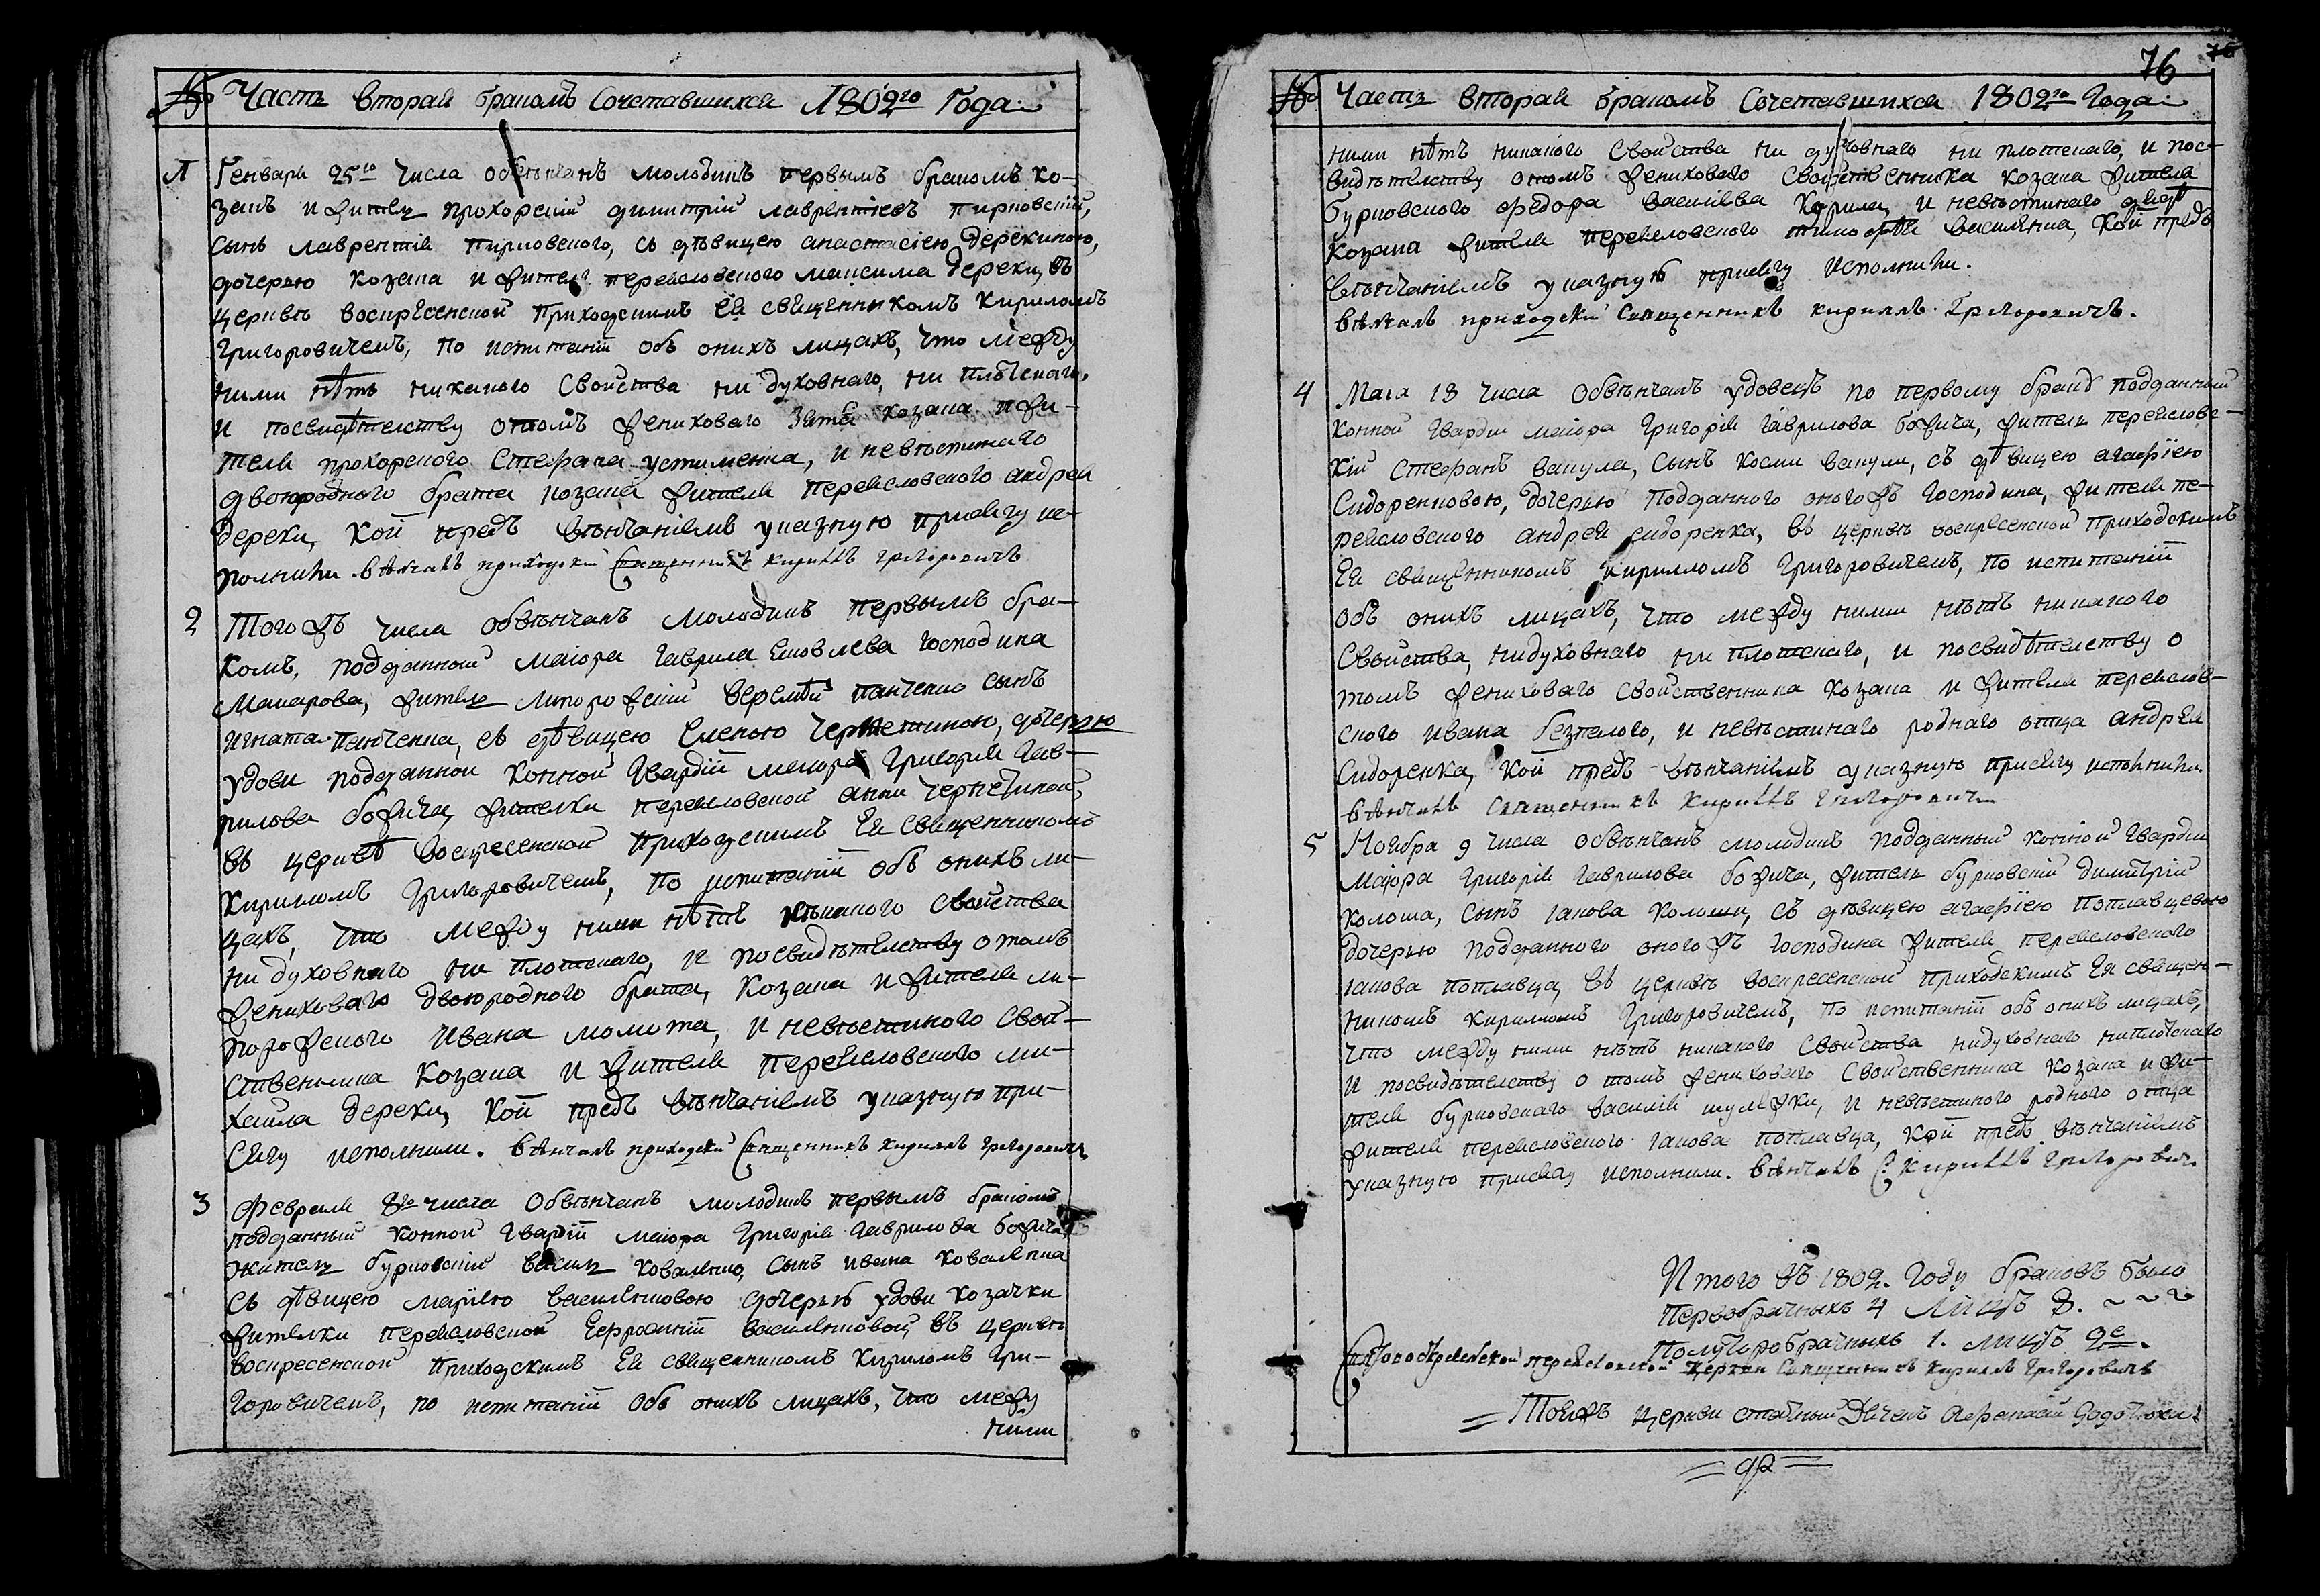 № Часть вторая бракомъ Сочетавшихся 1802го Года
1 Генваря 25го Числа обвѣнчанъ молодикъ первымъ бракомъ ко-
закъ и житель прохорскій димитрій лаврентіевъ пирковскій,
сынъ лаврентія пирковского, съ дѣвицею анастасіею Дерекиною,
дочерью козака и жителя перекловского максима дереки, въ
церквѣ воскресенской приходскимъ Ея священникомъ Кириломъ
Григоровичемъ, по испитаніи объ онихъ лицахъ, что между
ними нѣтъ никакого Свойства ни духовнаго, ни плотскаго,
и посвидѣтелству отомъ жениховаго зятя козака и жи-
теля прохорского Стефана устименка, и невѣстинаго
двоюродного брата козака жителя переясловского андрея
дереки, кои предъ вѣнчаніемъ указную присягу ис-
полнили. вѣнчалъ приходскій Священникъ кириллъ григоровичъ
2 Тогожъ числа обвѣнчанъ молодикъ первымъ бра-
комъ, подданный маіора гаврила Яковлева господина
Макарова, житель липорожскій Веремѣй панченко сынъ
игната панченка, съ дѣвицею Еленою Чернетиною, дочерью
удови подданной конной гвардіи маіора Григорія Гав-
рилова божича, жителки переясловской анни чернетиной,
въ церквѣ воскресенской приходскимъ Ея священникомъ
Кириломъ Григоровичемъ, по испитаніи объ онихъ ли-
цахъ, что между ними нѣтъ никакого свойства
ни духовнаго ни плотскаго, и посвидѣтелству отомъ
жениховаго двоюродного брата, Козака и жителя ли-
порожского Ивана молита, и невѣстиного свой-
ственника Козака и жителя переясловского ми-
хаила дереки, кои предъ вѣнчаніемъ указную при-
сягу исполнили. вѣнчалъ приходскій Священникъ кириллъ григоровичъ
3 Февраля 8го числа Обвѣнчанъ молодикъ первымъ бракомъ
подданный конной гвардіи маіора Григорія Гаврилова божича,
житель бурковскій василь коваленко, сынъ ивана коваленка
съ дѣвицею маріею василенковою дочерью удови козачки
жителки переясловской Евфросиніи василенковой, въ церквѣ
воскресенской приходскимъ Ея священникомъ Кириломъ Гри-
горовичемъ, по испитаніи объ онихъ лицахъ, что между
ними
76
№ Часть вторая бракомъ Сочетавшихся 1802го Года
ними нѣтъ никакого Свойства ни духовнаго ни плотскаго, и пос-
видѣтелству отомъ жениховаго Свойственника козака жителя
бурковского федора василіева Корила, и невѣстинаго дяди
козака жителя переясловского тимофѣя василенка, кои предъ
вѣнчаніемъ указную присягу исполнили.
вѣнчалъ приходскій Священникъ кириллъ Григоровичъ.
4 Маія 18 числа обвѣнчанъ удовецъ по первому бракѣ подданный
конной гвардіи маіора Григорія Гаврилова божича, житель переяслов-
скій стефанъ вакула, сынъ космы вакули, съ дѣвицею агафіею
Сидоренковою, дочерью подданного оногожъ господина, жителя пе-
реясловского андрея сидоренка, въ церквѣ воскресенской приходскимъ
Ея священникомъ Кирилломъ Григоровичемъ, по испитаніи
объ онихъ лицахъ, что между ними нѣтъ никакого
Свойства, нидуховнаго ни плотскаго, и посвидѣтелству о
томъ жениховаго свойственника козака и жителя переяслов-
ского ивана безпалого, и невѣстинаго роднаго отца андрея
Сидоренка, кои предъ вѣнчаніемъ указную присягу исполнили.
вѣнчалъ Священникъ Кириллъ Григоровичъ
5 Ноября 9 числа обвѣнчанъ молодикъ подданный конной гвардіи
Маіора Григорія Гаврилова божича, житель бурковскій димитрій
колоша, сынъ iакова колоши, съ дѣвицею агафіею поплавцевою
дочерью подданного оногожъ господина жителя переясловского
iакова поплавца, въ церквѣ воскресенской приходскимъ Ея священ-
никомъ Кирилломъ Григоровичемъ, по испитаніи объ онихъ лицахъ,
что между ними нѣтъ никакого свойства нидуховнаго ниплотскаго
и посвидѣтелству о томъ жениховаго Свойственника козака и жи-
теля бурковскаго василія шулжки, и невѣстиного родного отца
жителя переясловского iакова поплавца, кои предъ вѣнчаніемъ
указную присягу исполнили. вѣнчалъ С: Кириллъ Григоровичъ
Итого въ 1802. Году браковъ было
Первобрачныхъ 4 лицъ 8.
Полуторобрачныхъ 1. лицъ 2е.
переясловской церкви Священникъ Кириллъ Григоровичъ
Тояжъ церкви Дячекъ Афанасій